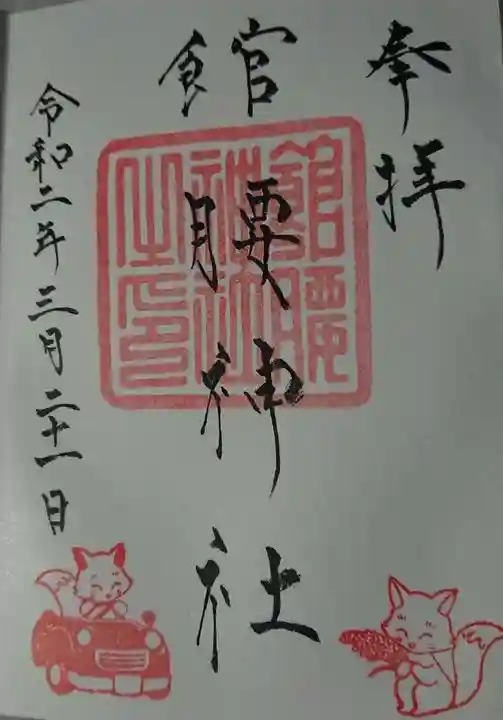 奉拝
館腰神社
館腰
神社
之印
令和二年三月二十一日